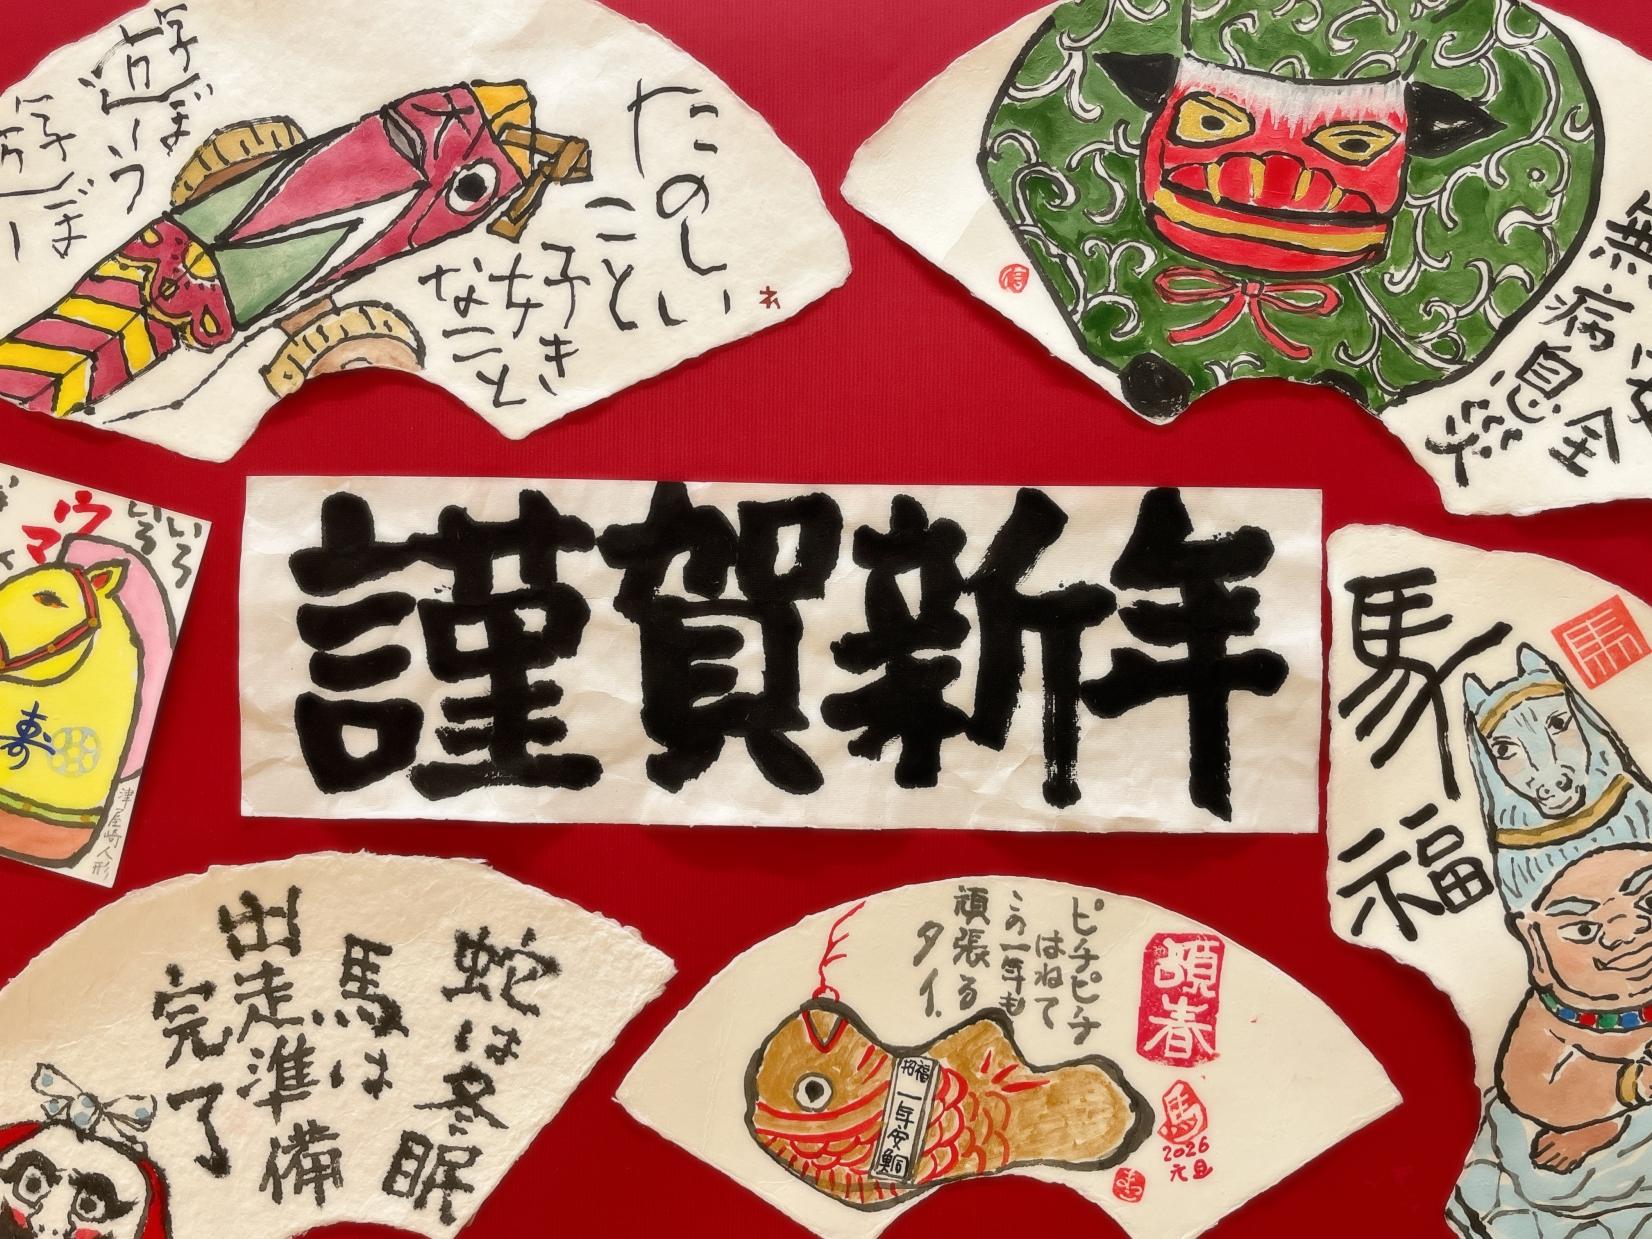 たのしい
こと
好き
なこと
遊ぼう
遊ぼ
無病息災
全
謹賀新年
いろ
いろ
ウマ
寿
津屋崎人形
馬福
馬
蛇は冬眠
馬は
出走準備
完了
頌春
ピチピチ
はねて
この一年も
頑張る
タイ.
招福
一年安鯛
馬
2026
元旦